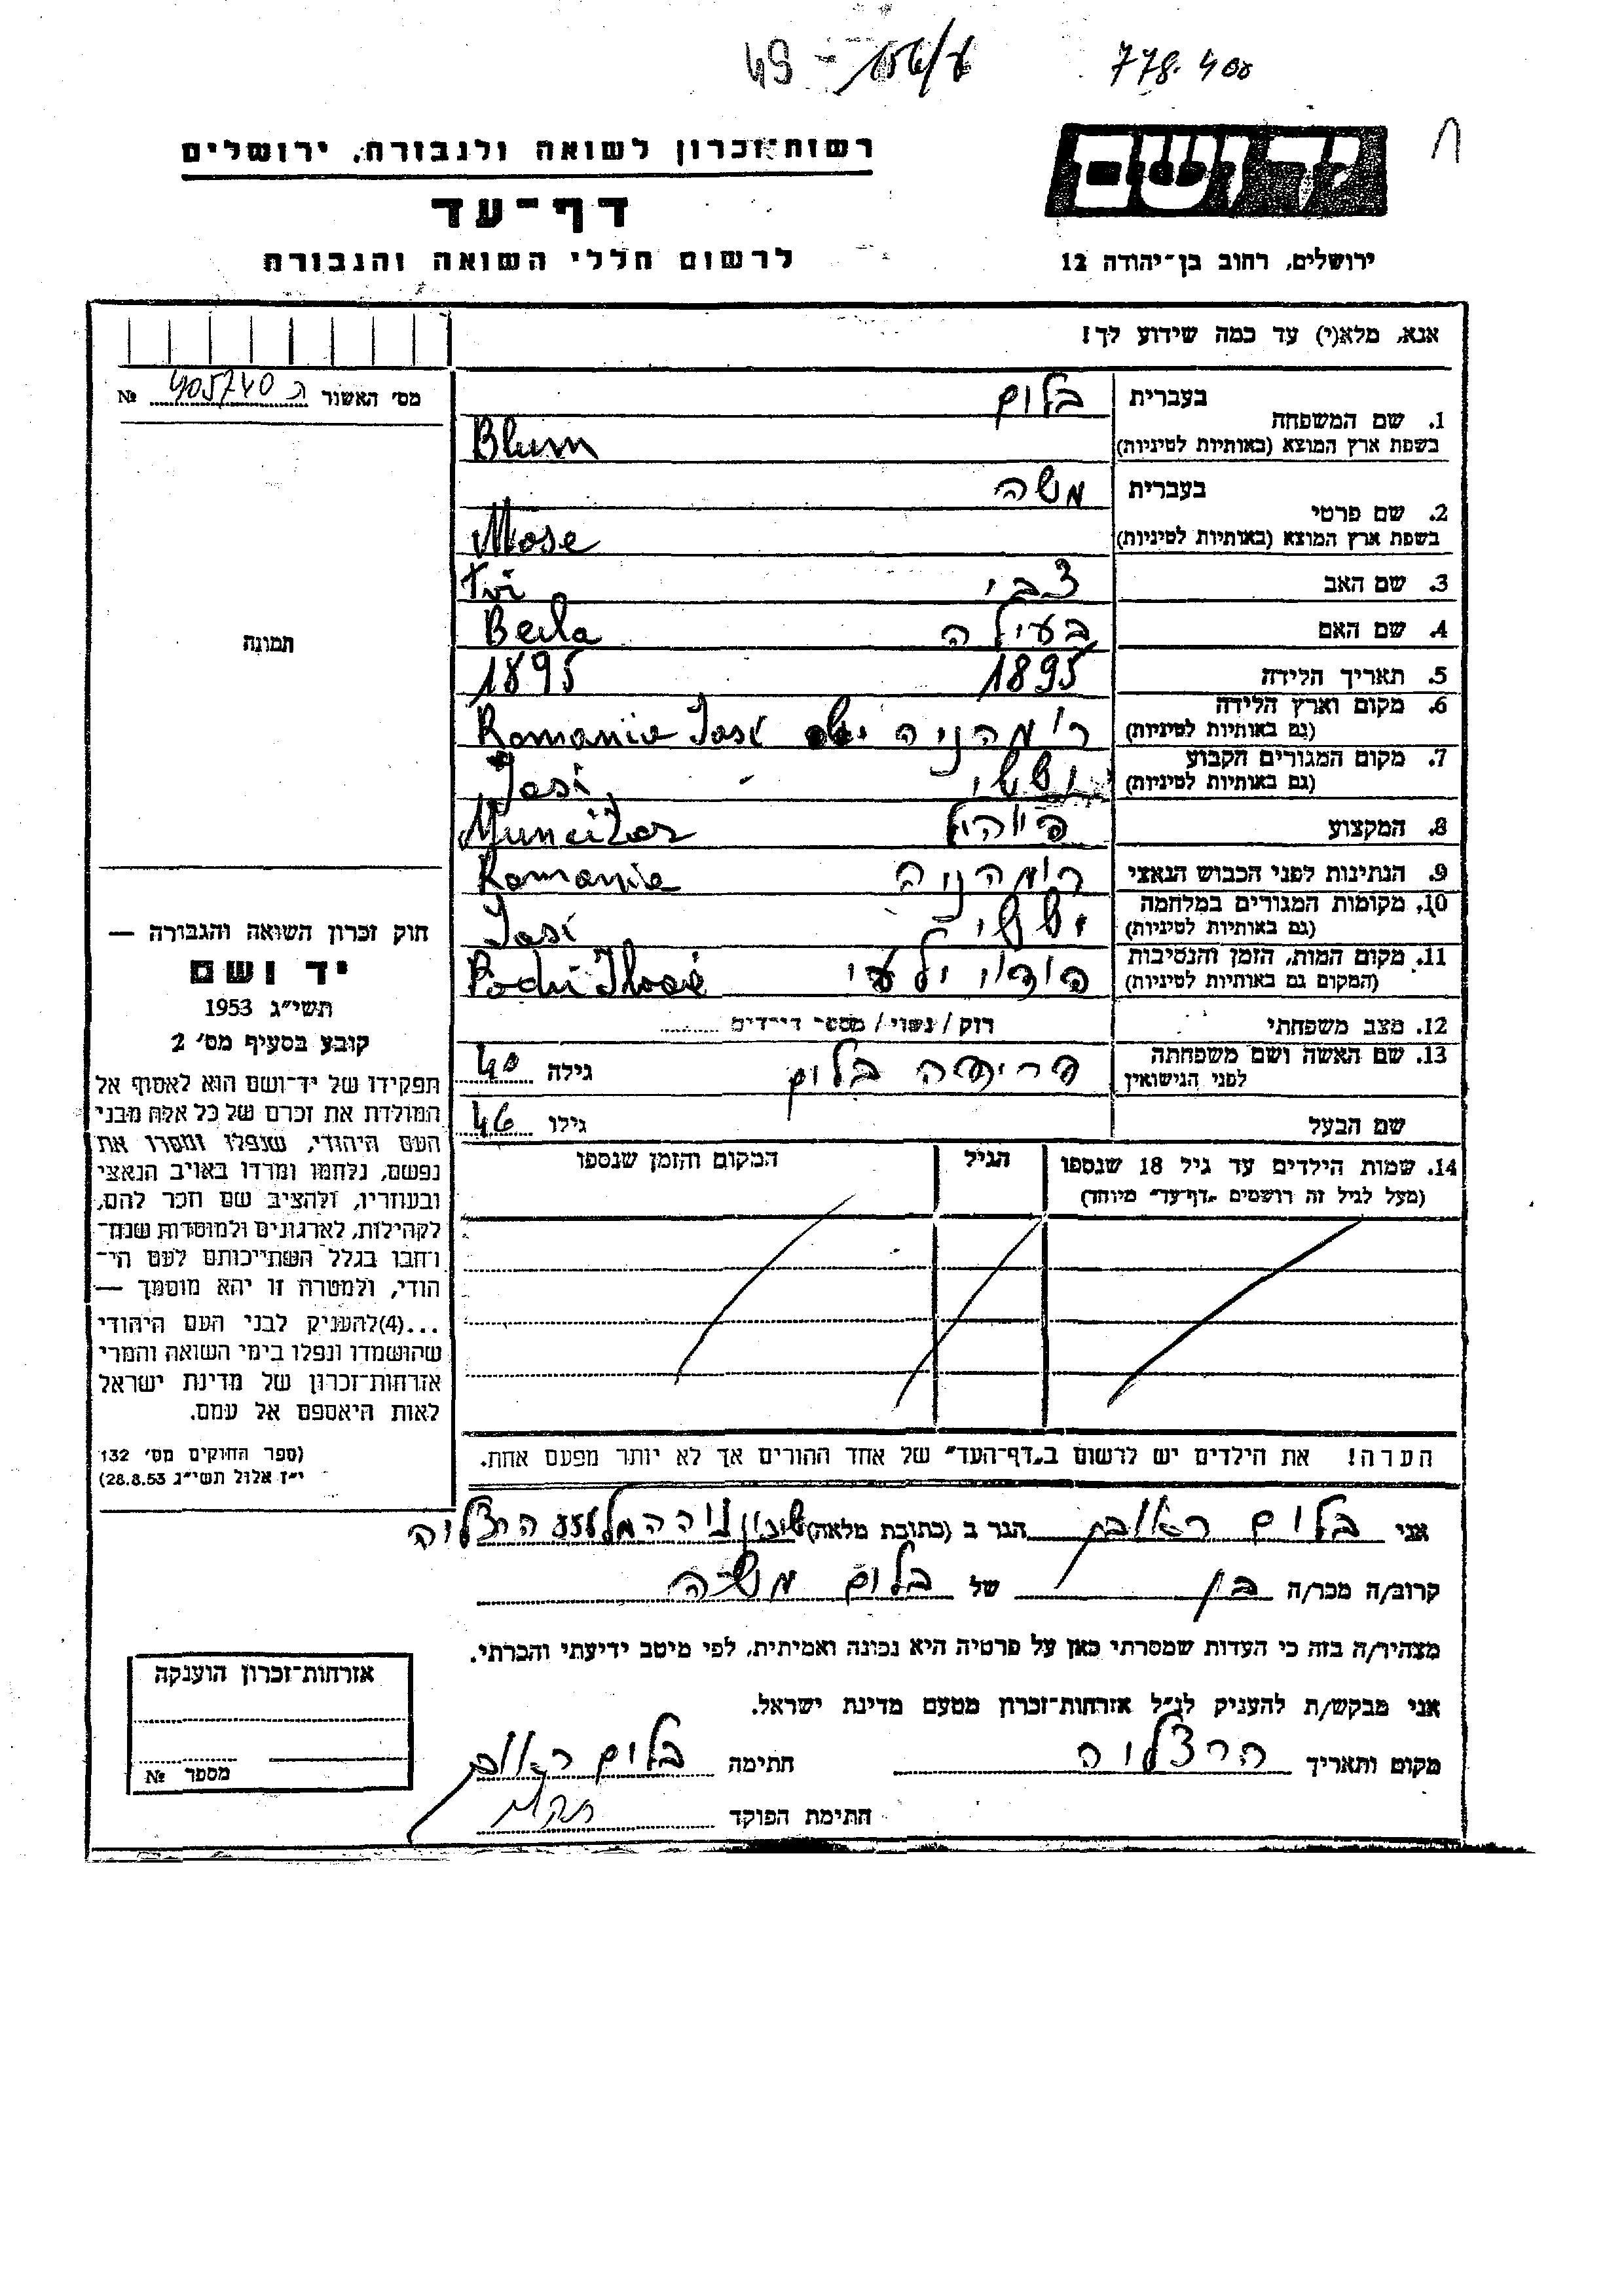 49 - 156/8
778.400
רשות־זכרון לשואה ולגבורה, ירושלים
דף־עד
לרשום חללי השואה והגבורה
יד ושם
ירושלים, רחוב בן־יהודה 12
אנא, מלא(י) עד כמה שידוע לך!
מס׳ האשור 405740 №
1. שם המשפחה
בעברית בלום
בשפת ארץ המוצא (באותיות לטיניות) Blum
2. שם פרטי
בעברית משה
בשפת ארץ המוצא (באותיות לטיניות) Mose
3. שם האב צבי Tvi
4. שם האם בעילה Beila
5. תאריך הלידה 1895 1895
6. מקום וארץ הלידה
(גם באותיות לטיניות) רומהניה Romania Iasi
7. מקום המגורים הקבוע
(גם באותיות לטיניות) יששי Iasi
8. המקצוע Muncitor
9. הנתינות לפני הכבוש הנאצי רומהניה Romania
10. מקומות המגורים במלחמה
(גם באותיות לטיניות) יששי Iasi
11. מקום המות, הזמן והנסיבות
(המקום גם באותיות לטיניות) Podu
12. מצב משפחתי רווק / נשוי / מספר הילדים
13. שם האשה ושם משפחתה
לפני הנישואין בלום גילה 40
שם הבעל גילו 46
14. שמות הילדים עד גיל 18 שנספו הגיל המקום והזמן שנספו
(מעל לגיל זה רושמים „דף־עד״ מיוחד)
הערה! את הילדים יש לרשום ב„דף־העד״ של אחד ההורים אך לא יותר מפעם אחת.
תמונה
חוק זכרון השואה והגבורה —
יד ושם
תשי״ג 1953
קובע בסעיף מס׳ 2
תפקידו של יד־ושם הוא לאסוף אל
המולדת את זכרם של כל אלה מבני
העם היהודי, שנפלו ומסרו את
נפשם, נלחמו ומרדו באויב הנאצי
ובעוזריו, ולהציב שם וזכר להם,
לקהילות, לארגונים ולמוסדות שנח־
רבו בגלל השתייכותם לעם הי־
הודי, ולמטרה זו יהא מוסמך —
...(4)להעניק לבני העם היהודי
שהושמדו ונפלו בימי השואה והמרי
אזרחות־זכרון של מדינת ישראל
לאות היאספם אל עמם.
(ספר החוקים מס׳ 132
י״ז אלול תשי״ג 28.8.53)
אני בלום ראובן הגר ב (כתובת מלאה) שיכון הרצליה
קרוב/ה מכר/ה בן של בלום משה
מצהיר/ה בזה כי העדות שמסרתי כאן על פרטיה היא נכונה ואמיתית, לפי מיטב ידיעתי והכרתי.
אני מבקש/ת להעניק לנ״ל אזרחות־זכרון מטעם מדינת ישראל.
מקום ותאריך הרצליה חתימה בלום ראובן
חתימת הפוקד
אזרחות־זכרון הוענקה
מספר №